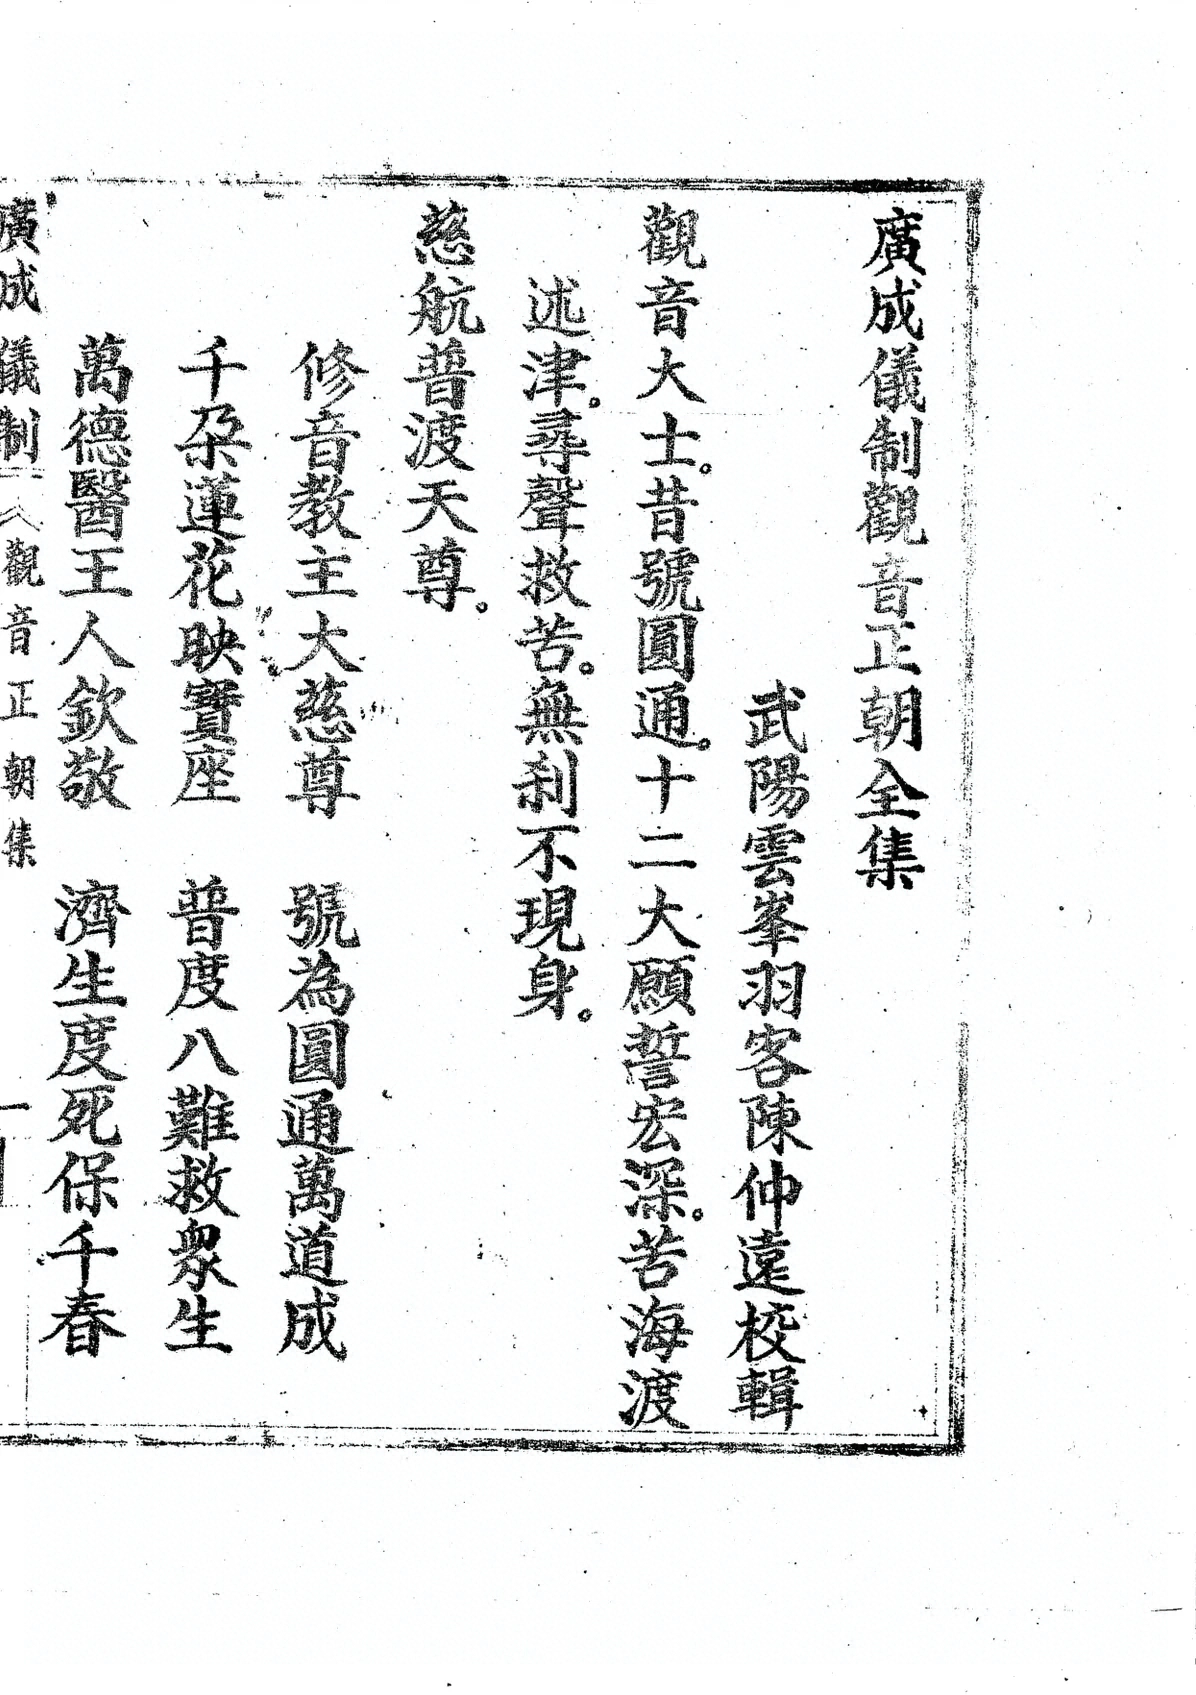 廣成儀制觀音正朝全集
武陽雲峯羽客陳仲遠校輯
觀音大士。昔號圓通。十二大願誓宏深。苦海渡
述津。尋聲救苦。無刹不現身。
慈航普渡天尊。
修音教主大慈尊　號為圓通萬道成
千朶蓮花映寶座　普度八難救衆生
萬德醫王人欽敬　濟生度死保千春
廣成儀制　觀音正朝集　一